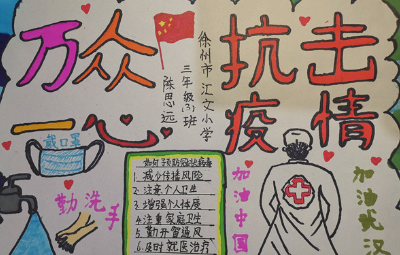 万众一心
抗击疫情
徐州市汇文小学
三年级(3)班
陈思远
戴口罩
勤洗手
如何预防冠状病毒
1.减少传播风险
2.注意个人卫生
3.增强个人体质
4.注重家庭卫生
5.勤开窗通风
6.及时就医治疗
加油中国
加油武汉